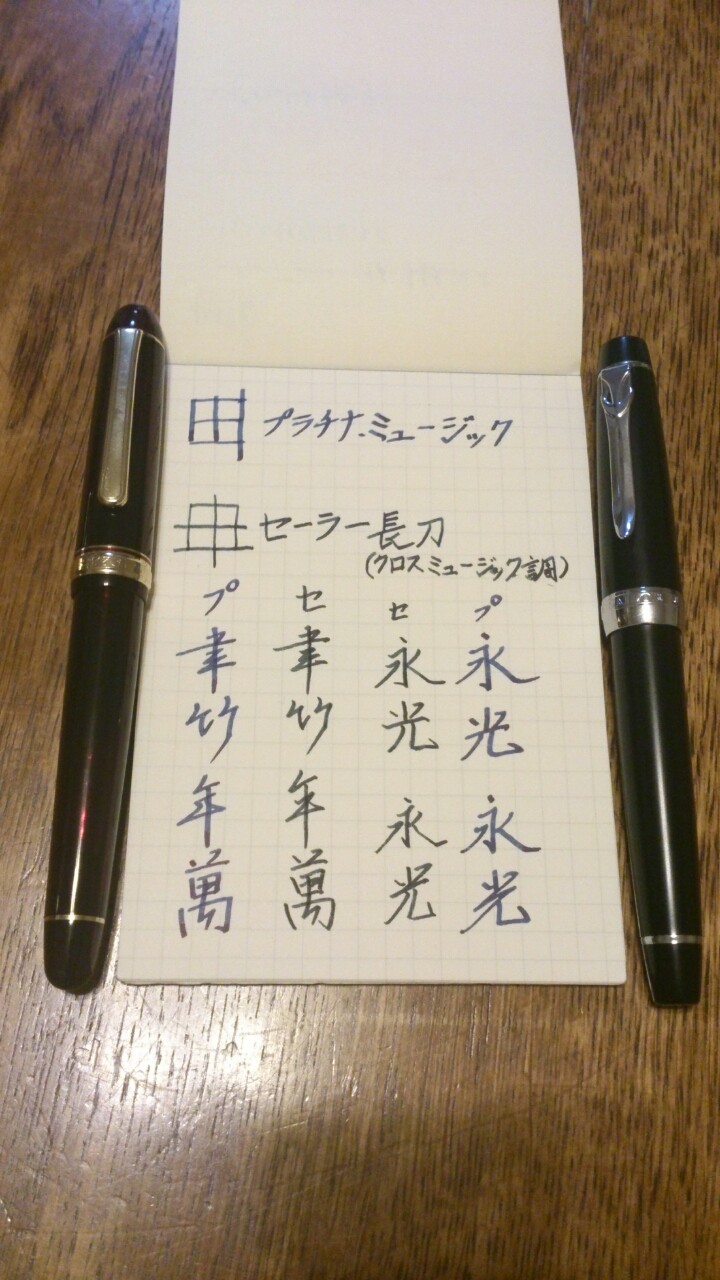 田 プラチナ.ミュージック
セーラー長刀
(クロスミュージック調)
プ セ セ プ
永 永
竹 竹 光 光
年 年 永 永
萬 萬 光 光